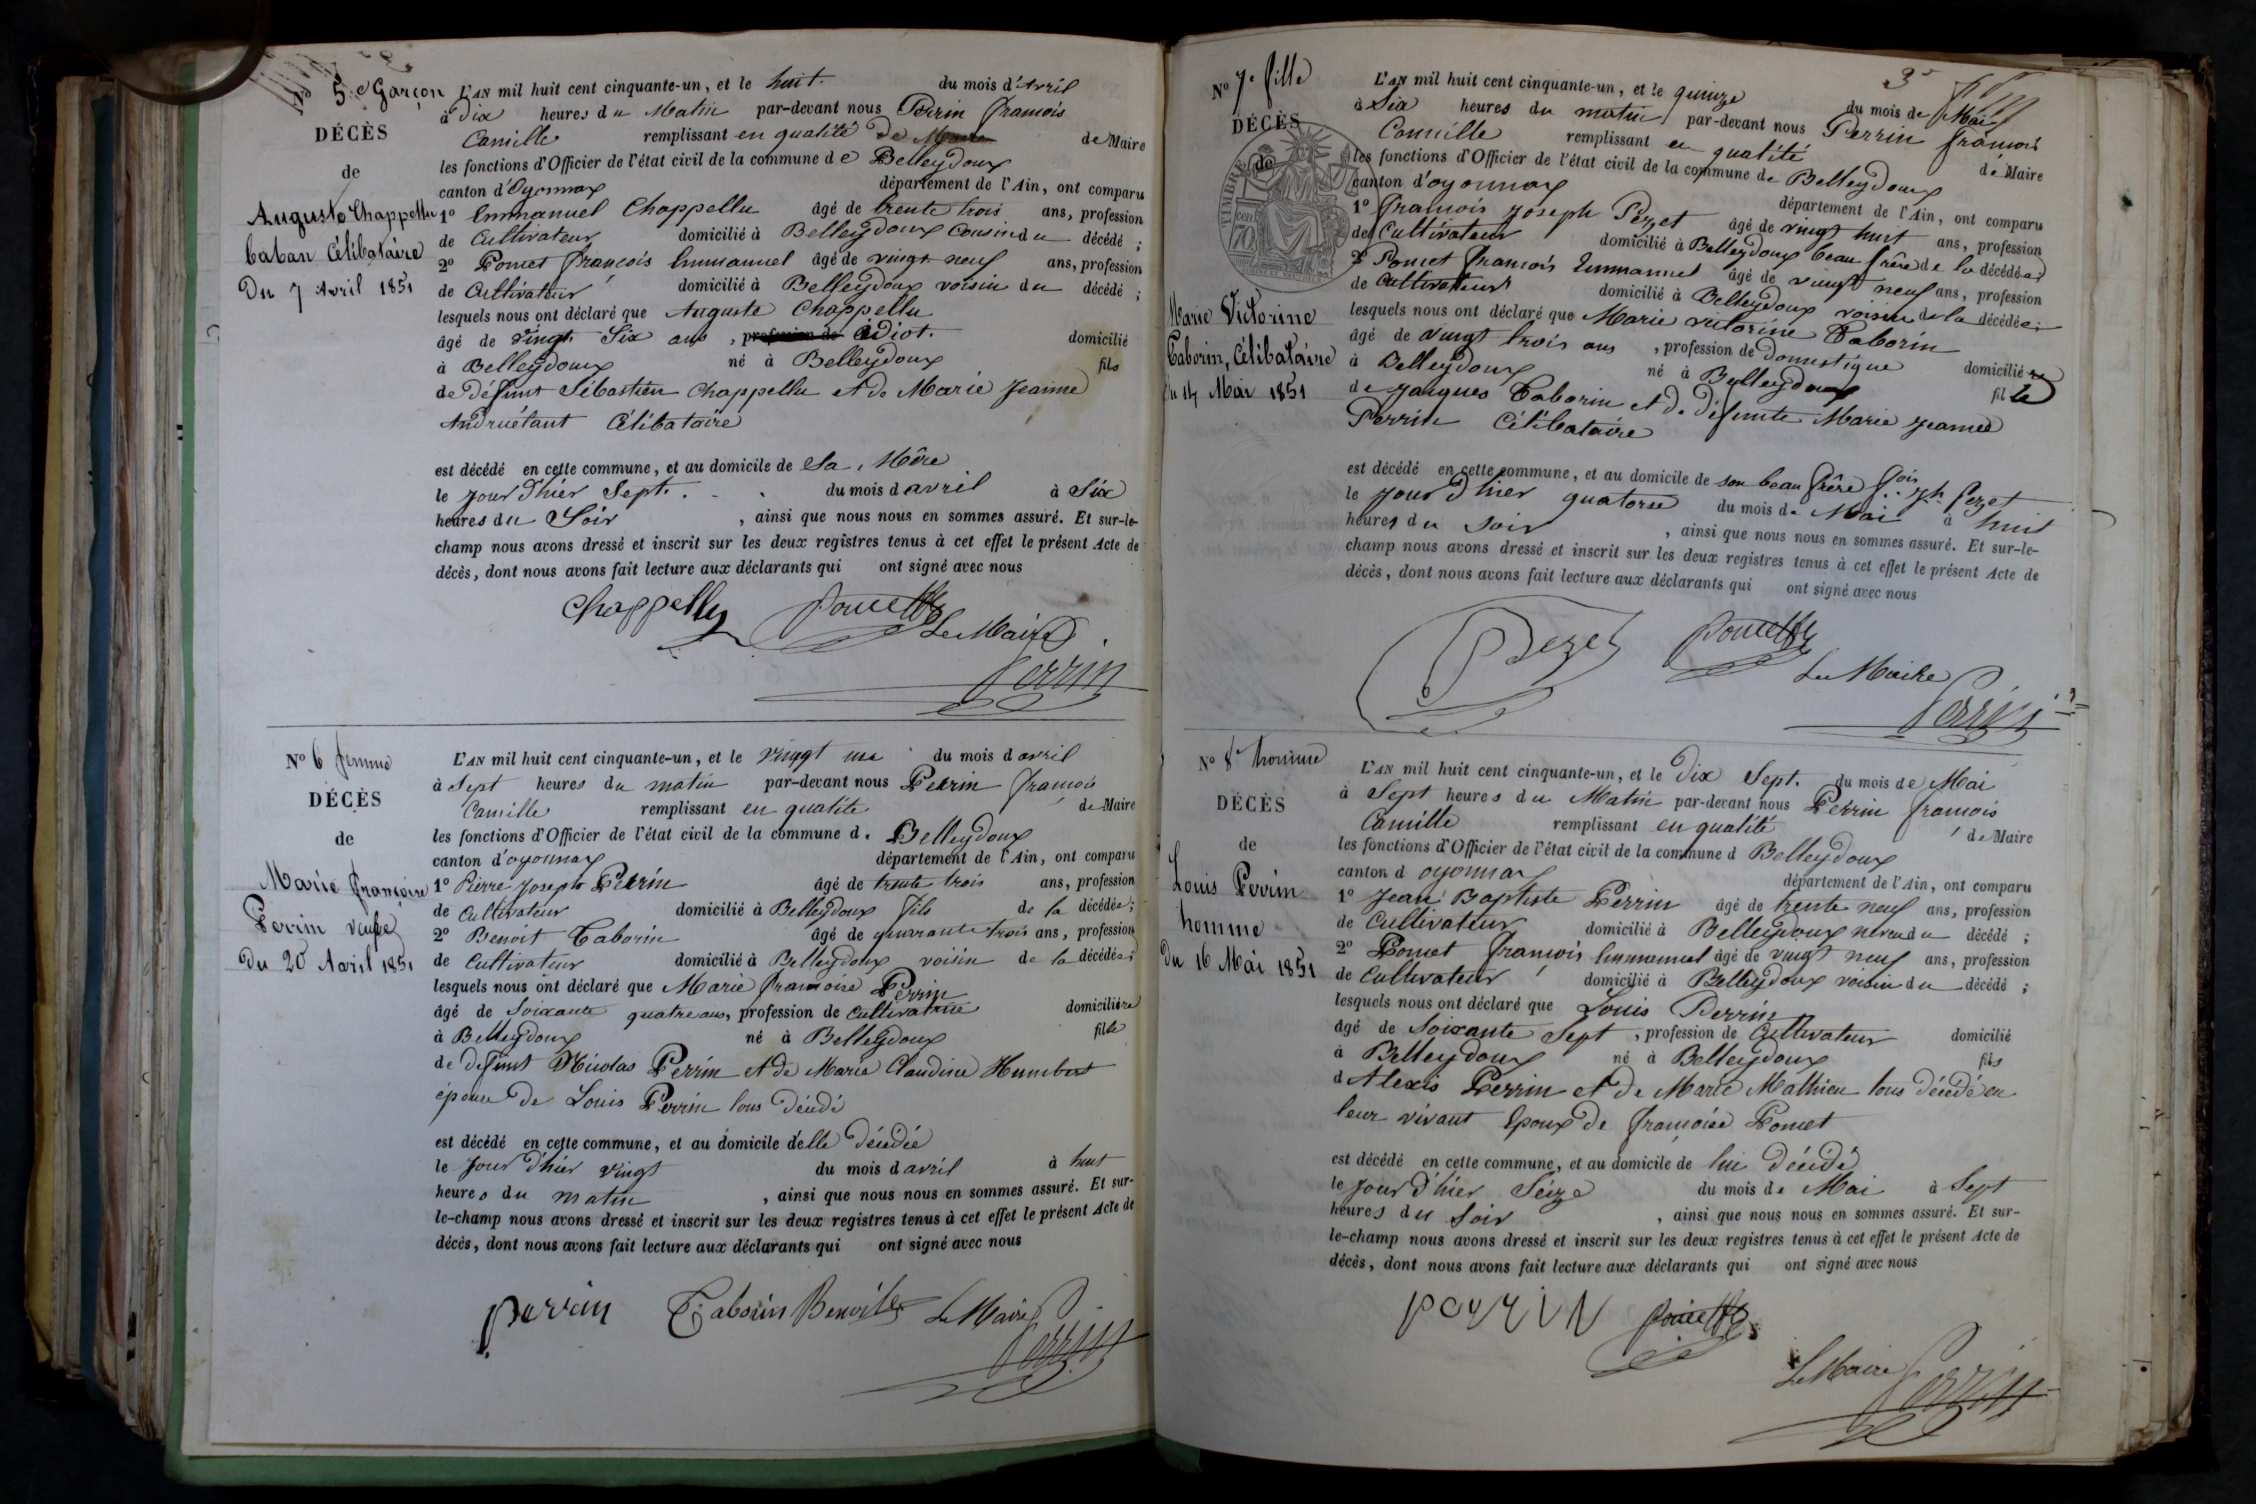 No 5e Garçon
DÉCÈS
de
Auguste Chappellu
baban Célibataire
Du 7 Avril 1851
L'AN mil huit cent cinquante-un, et le huit du mois d'Avril
à Dix heures du Matin par-devant nous Perrin françois
Camille remplissant en qualité de Maire
les fonctions d'Officier de l'état civil de la commune de Belleydoux
canton d'Oyonnax département de l'Ain, ont comparu
1º Emmanuel Chappellu âgé de trente trois ans, profession
de Cultivateur domicilié à Belleydoux Cousin du décédé ;
2º Poncet françois Emmanuel âgé de vingt neuf ans, profession
de Cultivateur domicilié à Belleydoux voisin du décédé ;
lesquels nous ont déclaré que Auguste Chappellu
âgé de vingt Six ans , profession de idiot. domicilié
à Belleydoux né à Belleydoux fils
de défunt Sébastien Chappellu et de Marie Jeanne
Andruétant Célibataire
est décédé en cette commune, et au domicile de Sa Mère
le jour d'hier Sept. du mois d avril à Six
heures du Soir , ainsi que nous nous en sommes assuré. Et sur-le-
champ nous avons dressé et inscrit sur les deux registres tenus à cet effet le présent Acte de
décès, dont nous avons fait lecture aux déclarants qui ont signé avec nous
Chappellu Poncet fe
Le Maire
Perrin
No 6 femme
DÉCÈS
de
Marie françoise
Perrin veuve
Du 20 Avril 1851
L'AN mil huit cent cinquante-un, et le vingt un du mois d avril
à Sept heures du matin par-devant nous Perrin françois
Camille remplissant en qualité de Maire
les fonctions d'Officier de l'état civil de la commune d. Belleydoux
canton d'oyonnax département de l'Ain, ont comparu
1º Pierre Joseph Perrin âgé de trente trois ans, profession
de Cultivateur domicilié à Belleydoux fils de la décédée ;
2º Benoit Taborin âgé de quarante trois ans, profession
de Cultivateur domicilié à Belleydoux voisin de la décédée ;
lesquels nous ont déclaré que Marie françoise Perrin
âgé de Soixante quatre ans, profession de Cultivatrice domiciliée
à Belleydoux né à Belleydoux fille
de defunt Nicolas Perrin et de Marie Claudine Humbert
épouse de Louis Perrin tous décédé
est décédé en cette commune, et au domicile d'elle Décédée
le jour d'hier vingt du mois d avril à huit
heures du matin , ainsi que nous nous en sommes assuré. Et sur-
le-champ nous avons dressé et inscrit sur les deux registres tenus à cet effet le présent Acte de
décès, dont nous avons fait lecture aux déclarants qui ont signé avec nous
perrin Taborin Benoit Le Maire
Perrin
3e
No 7e fille
DÉCÈS
de
TIMBRE
70 cen
Marie Victorine
Taborin, Célibataire
Du 14 Mai 1851
L'AN mil huit cent cinquante-un, et le quinze du mois de Mai
à Six heures du matin par-devant nous Perrin françois
Camille remplissant en qualité de Maire
les fonctions d'Officier de l'état civil de la commune de Belleydoux
canton d'oyonnax département de l'Ain, ont comparu
1º françois Joseph Pezet âgé de vingt huit ans, profession
de Cultivateur domicilié à Belleydoux beau frère de la décédée
2º Poncet françois Emmanuel âgé de vingt neuf ans, profession
de Cultivateur domicilié à Belleydoux voisin de la décédée ;
lesquels nous ont déclaré que Marie victorine Taborin
âgé de vingt trois ans , profession de domestique domiciliée
à Belleydoux né à Belleydoux fille
de Jacques Taborin et de défunte Marie Jeanne
Perrin Célibataire
est décédé en cette commune, et au domicile de son beau frère fçois jph Pezet
le jour d'hier quatorze du mois de Mai à huit
heures du soir , ainsi que nous nous en sommes assuré. Et sur-le-
champ nous avons dressé et inscrit sur les deux registres tenus à cet effet le présent Acte de
décès, dont nous avons fait lecture aux déclarants qui ont signé avec nous
Pezet Poncet fe
Le Maire
Perrin
No 8e homme
DÉCÈS
de
Louis Perrin
homme
Du 16 Mai 1851
L'AN mil huit cent cinquante-un, et le Dix Sept. du mois de Mai
à Sept heures du Matin par-devant nous Perrin françois
Camille remplissant en qualité de Maire
les fonctions d'Officier de l'état civil de la commune d Belleydoux
canton d oyonnax département de l'Ain, ont comparu
1º Jean Baptiste Perrin âgé de trente neuf ans, profession
de Cultivateur domicilié à Belleydoux neveu du décédé ;
2º Poncet françois Emmanuel âgé de vingt neuf ans, profession
de Cultivateur domicilié à Belleydoux voisin du décédé ;
lesquels nous ont déclaré que Louis Perrin
âgé de Soixante Sept , profession de Cultivateur domicilié
à Belleydoux né à Belleydoux fils
d Alexis Perrin et de Marie Mathieu tous décédé en
leur vivant Epoux de françoise Poncet
est décédé en cette commune, et au domicile de lui Décédé
le jour d'hier Seize du mois de Mai à Sept
heures du Soir , ainsi que nous nous en sommes assuré. Et sur-
le-champ nous avons dressé et inscrit sur les deux registres tenus à cet effet le présent Acte de
décès, dont nous avons fait lecture aux déclarants qui ont signé avec nous
perrin Poncet fe
Le Maire
Perrin